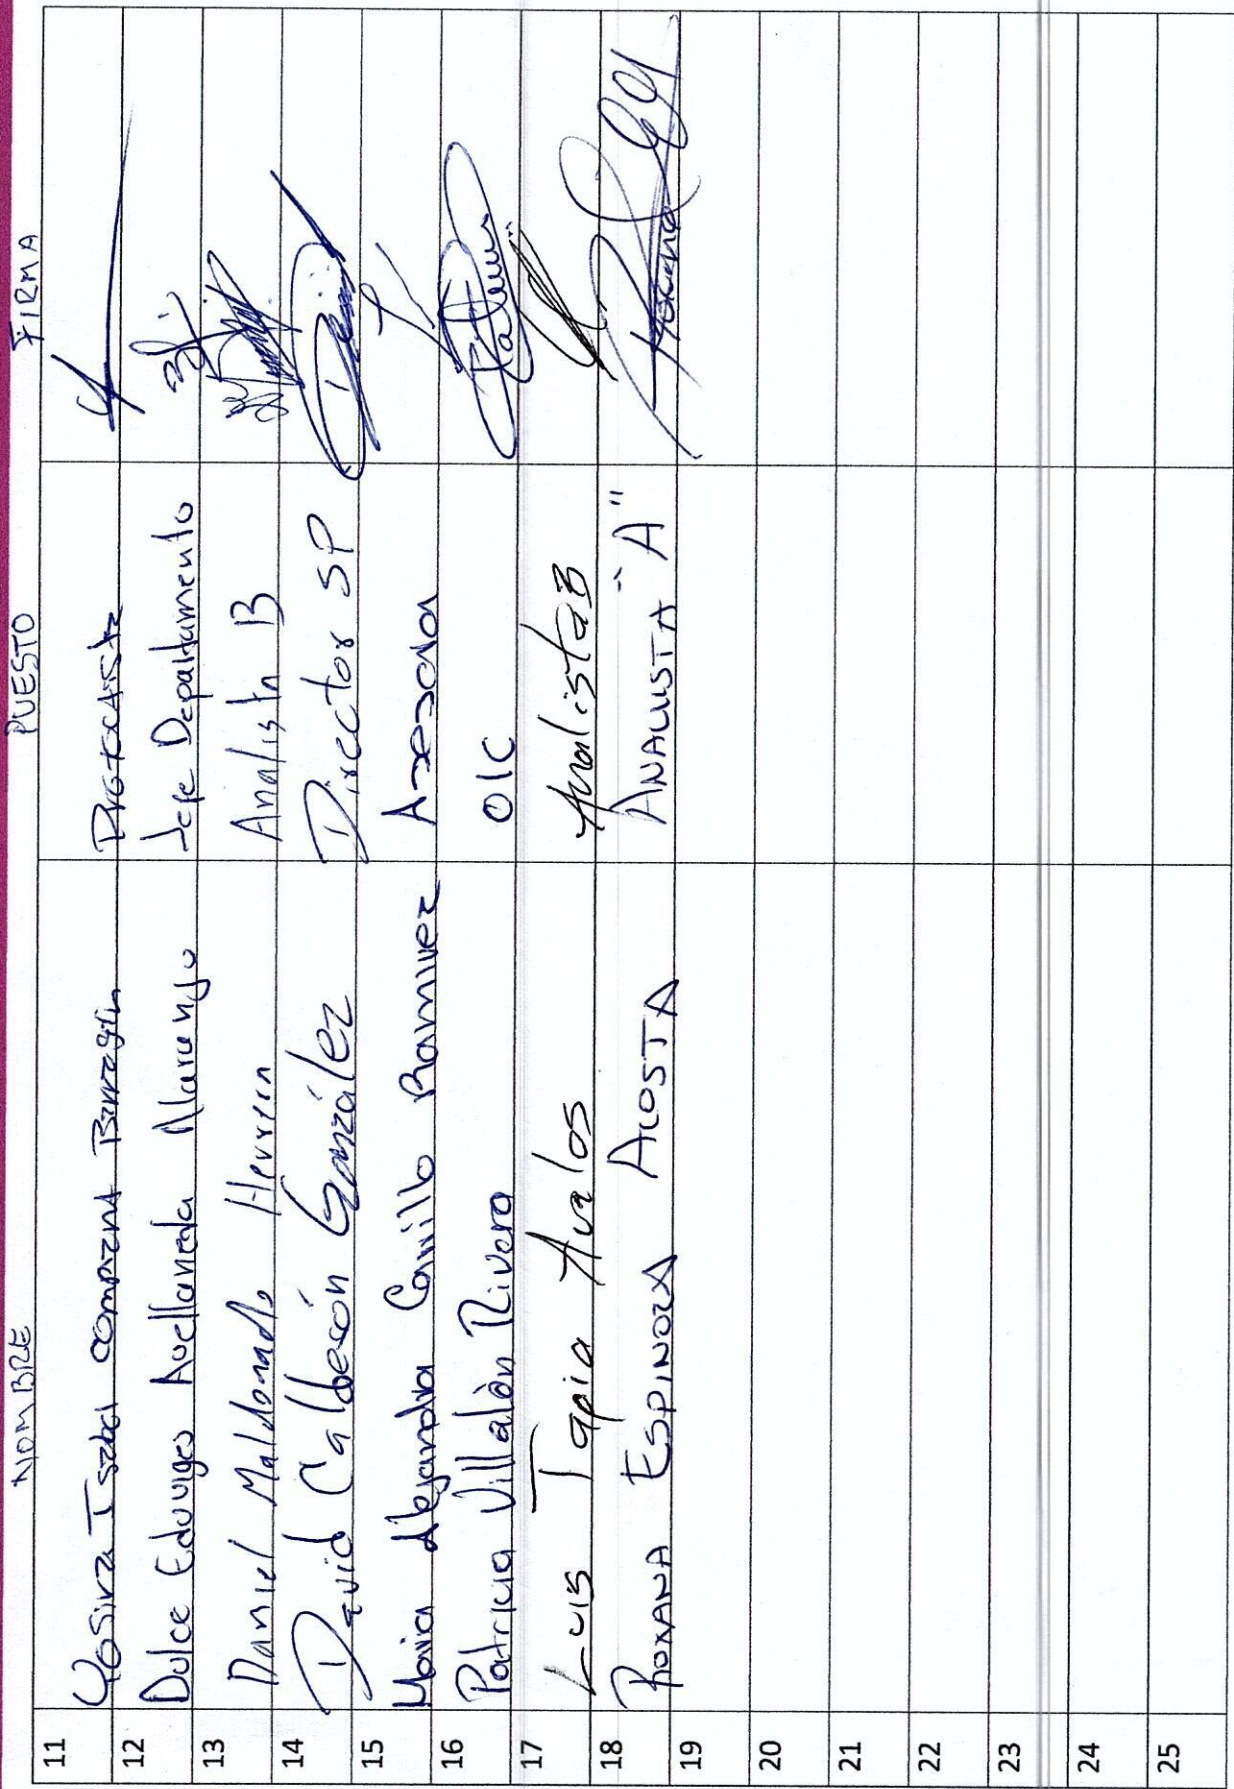 NOMBRE PUESTO FIRMA
11 Isabel
12 Dulce Eduviges Avellaneda Jefe Departamento
13 Daniel Maldonado Herrera Analista B
14 David Calderón González Director SP
15 Maria Alejandra Ramirez Asesora
16 Patricia Villalòn Rivera OIC
17 Luis Tapia Avalos Analista B
18 ROXANA ESPINOZA ACOSTA ANALISTA "A" Roxana
19
20
21
22
23
24
25